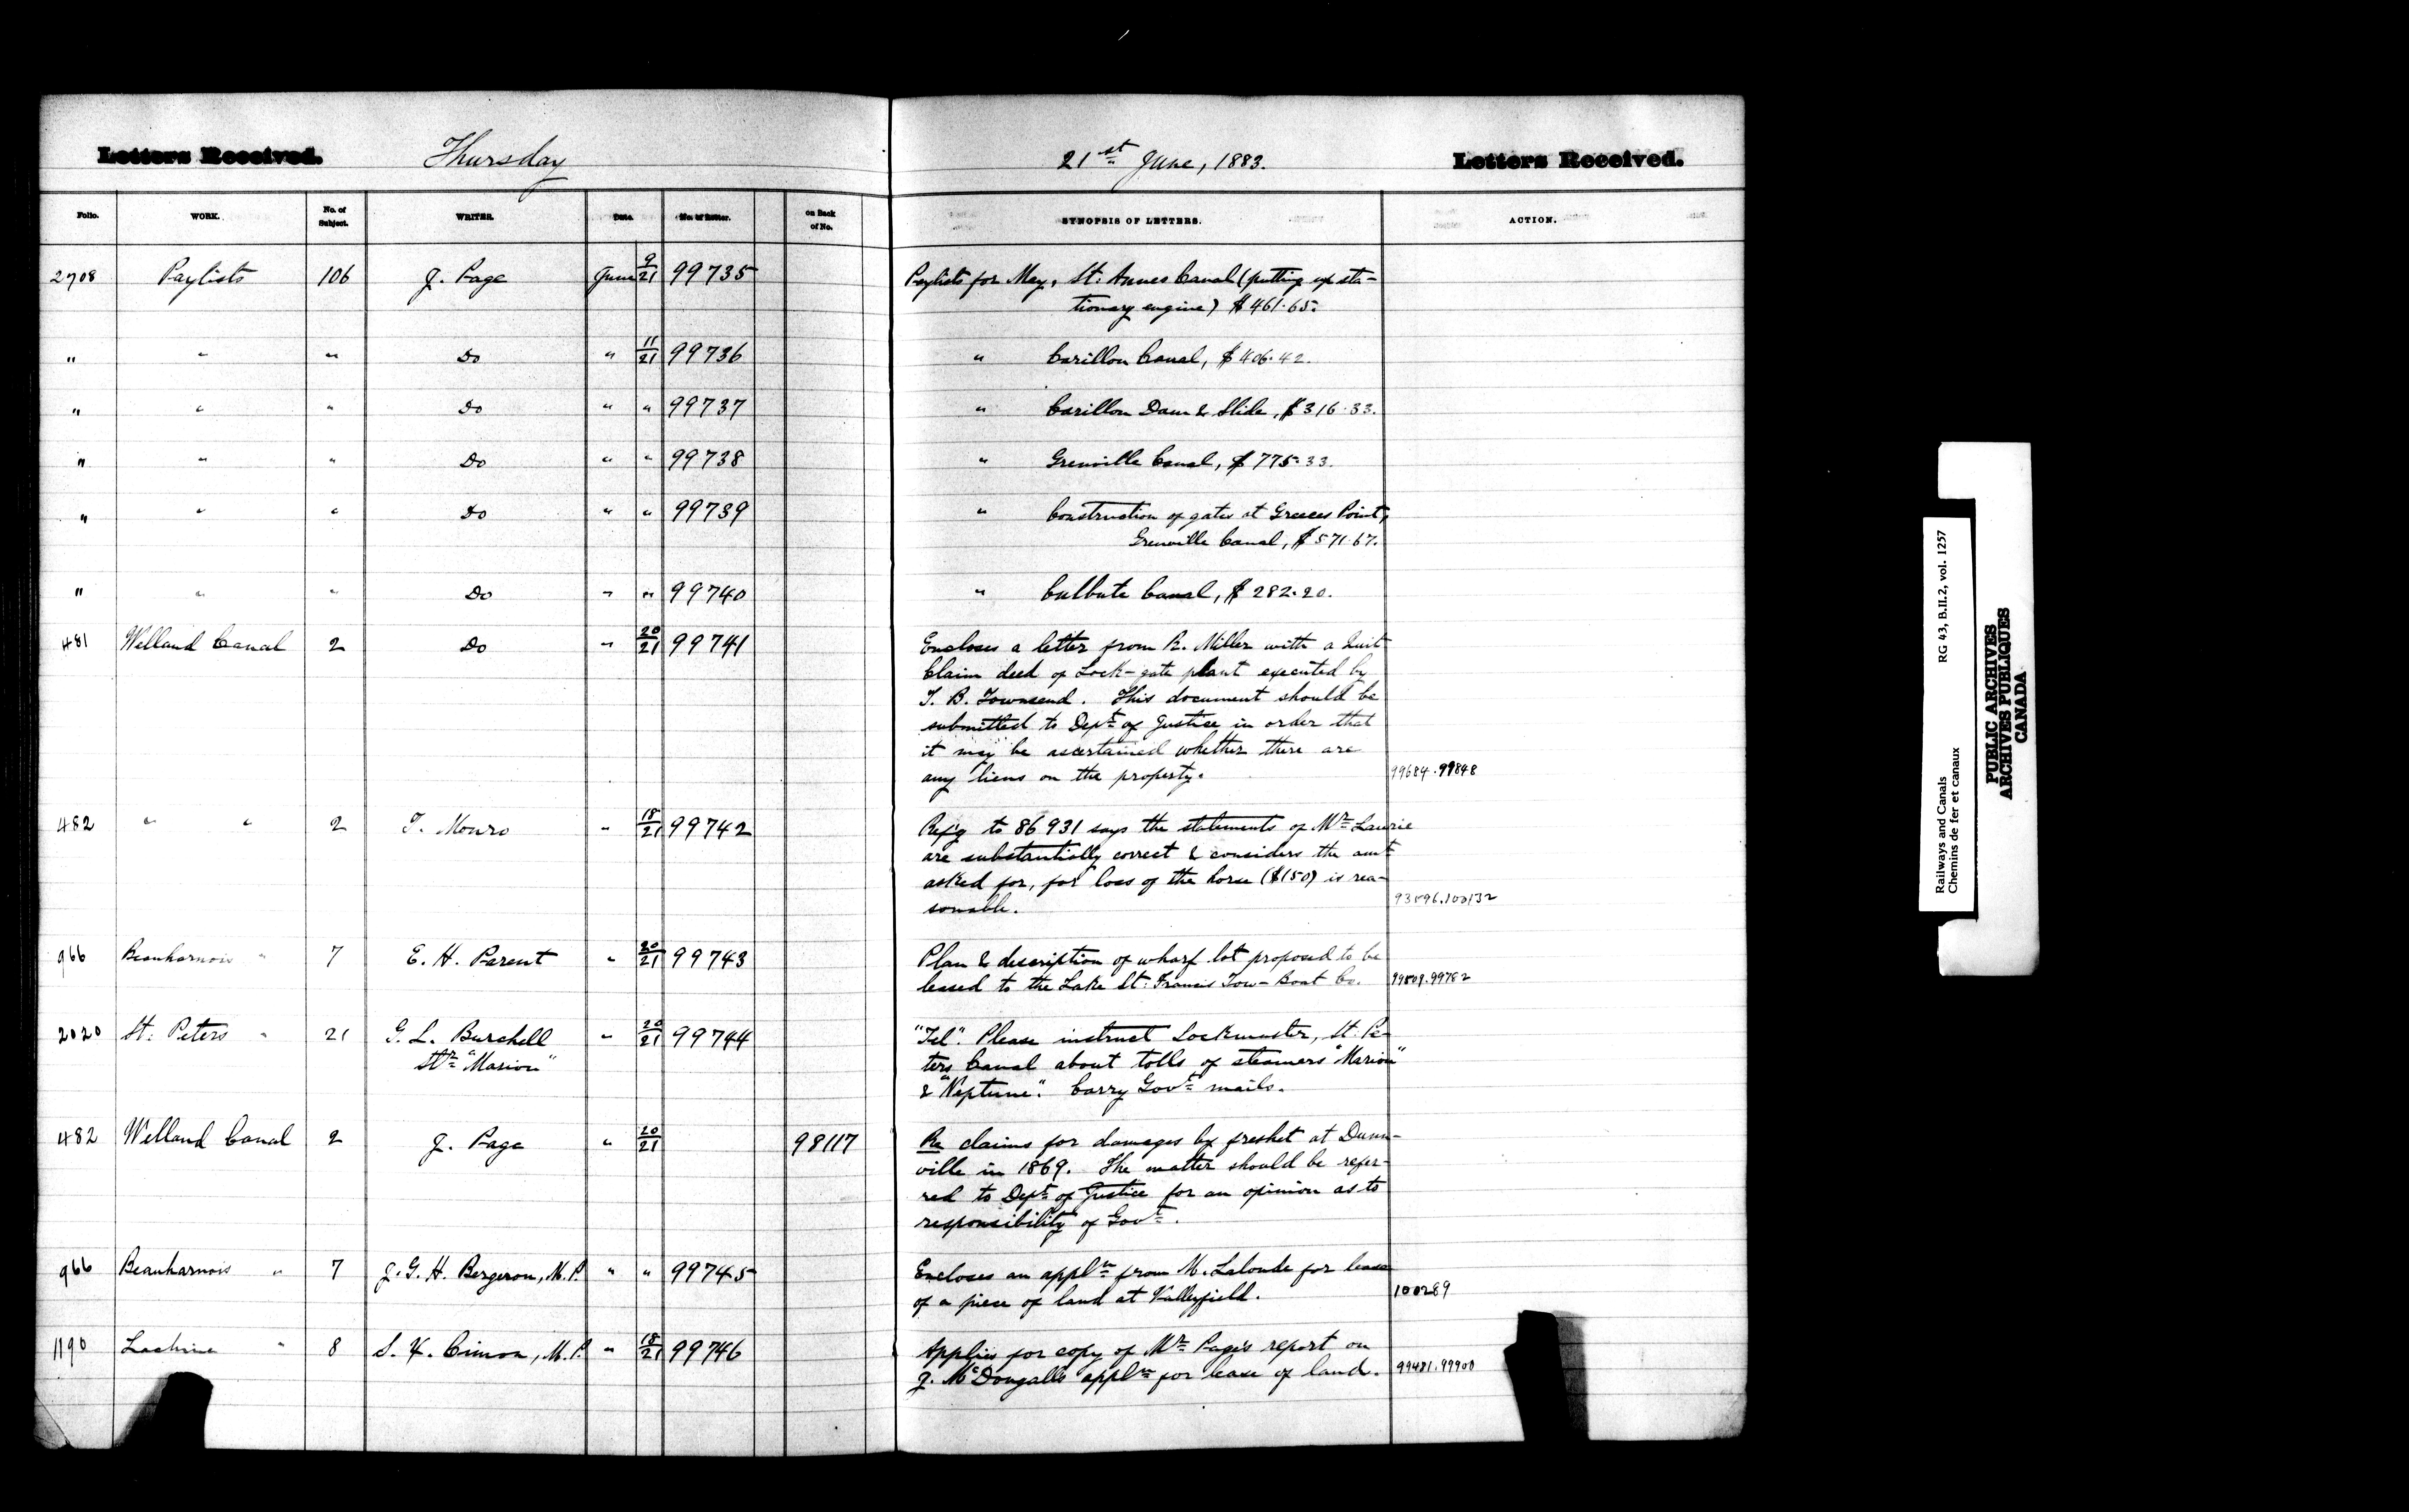 Letters Received. Thursday 21st June, 1883. Letters Received.
Folio. WORK. No. of Subject. WRITER. Date. No. of Letter. on Back of No. SYNOPSIS OF LETTERS. ACTION.
2708 Paylists 106 J. Page June 9/21 99735 Paylists for May, St. Annes Canal (putting up sta-
tionary engine) $461.65.
" " " Do " 11/21 99736 " Carillon Canal, $406.42.
" " " Do " " 99737 " Carillon Dam & Slide, $316.33.
" " " Do " " 99738 " Grenville Canal, $775.33.
" " " Do " " 99739 " Construction of gates at Greeces Point,
Grenville Canal, $571.67.
" " " Do " " 99740 " Culbute Canal, $282.20.
481 Welland Canal 2 Do " 20/21 99741 Encloses a letter from R. Miller with a Quit
Claim deed of Lock-gate plant executed by
T. B. Townsend. This document should be
submitted to Dept of Justice in order that
it may be ascertained whether there are
any liens on the property. 99684.99848
482 " " 2 T. Monro " 18/21 99742 Ref'g to 86931 says the statements of Mr Laurie
are substantially correct & considers the amt
asked for, for loss of the horse ($150) is rea-
sonable. 93596.100132
966 Beauharnois " 7 E. H. Parent " 20/21 99743 Plan & description of wharf lot proposed to be
leased to the Lake St. Francis Tow-Boat Co. 99509.99782
2020 St. Peters " 21 G. L. Burchell " 20/21 99744 "Tel". Please instruct Lockmaster, St. Pe-
Str "Marion" ters Canal about tolls of steamers "Marion"
& "Neptune". Carry Govt mails.
482 Welland Canal 2 J. Page " 20/21 98117 Re claims for damages by freshet at Dunn-
ville in 1869. The matter should be refer-
red to Dept of Justice for an opinion as to
responsibility of Govt.
966 Beauharnois " 7 J. G. H. Bergeron, M.P. " " 99745 Encloses an appln from M. Lalonde for lease
of a piece of land at Valleyfield. 100289
1190 Lachine " 8 S. X. Cimon, M.P. " 18/21 99746 Applies for copy of Mr Page's report on
J. McDougall's appln for lease of land. 99481.99900
Railways and Canals RG 43, B.II.2, vol. 1257
Chemins de fer et canaux
PUBLIC ARCHIVES
ARCHIVES PUBLIQUES
CANADA